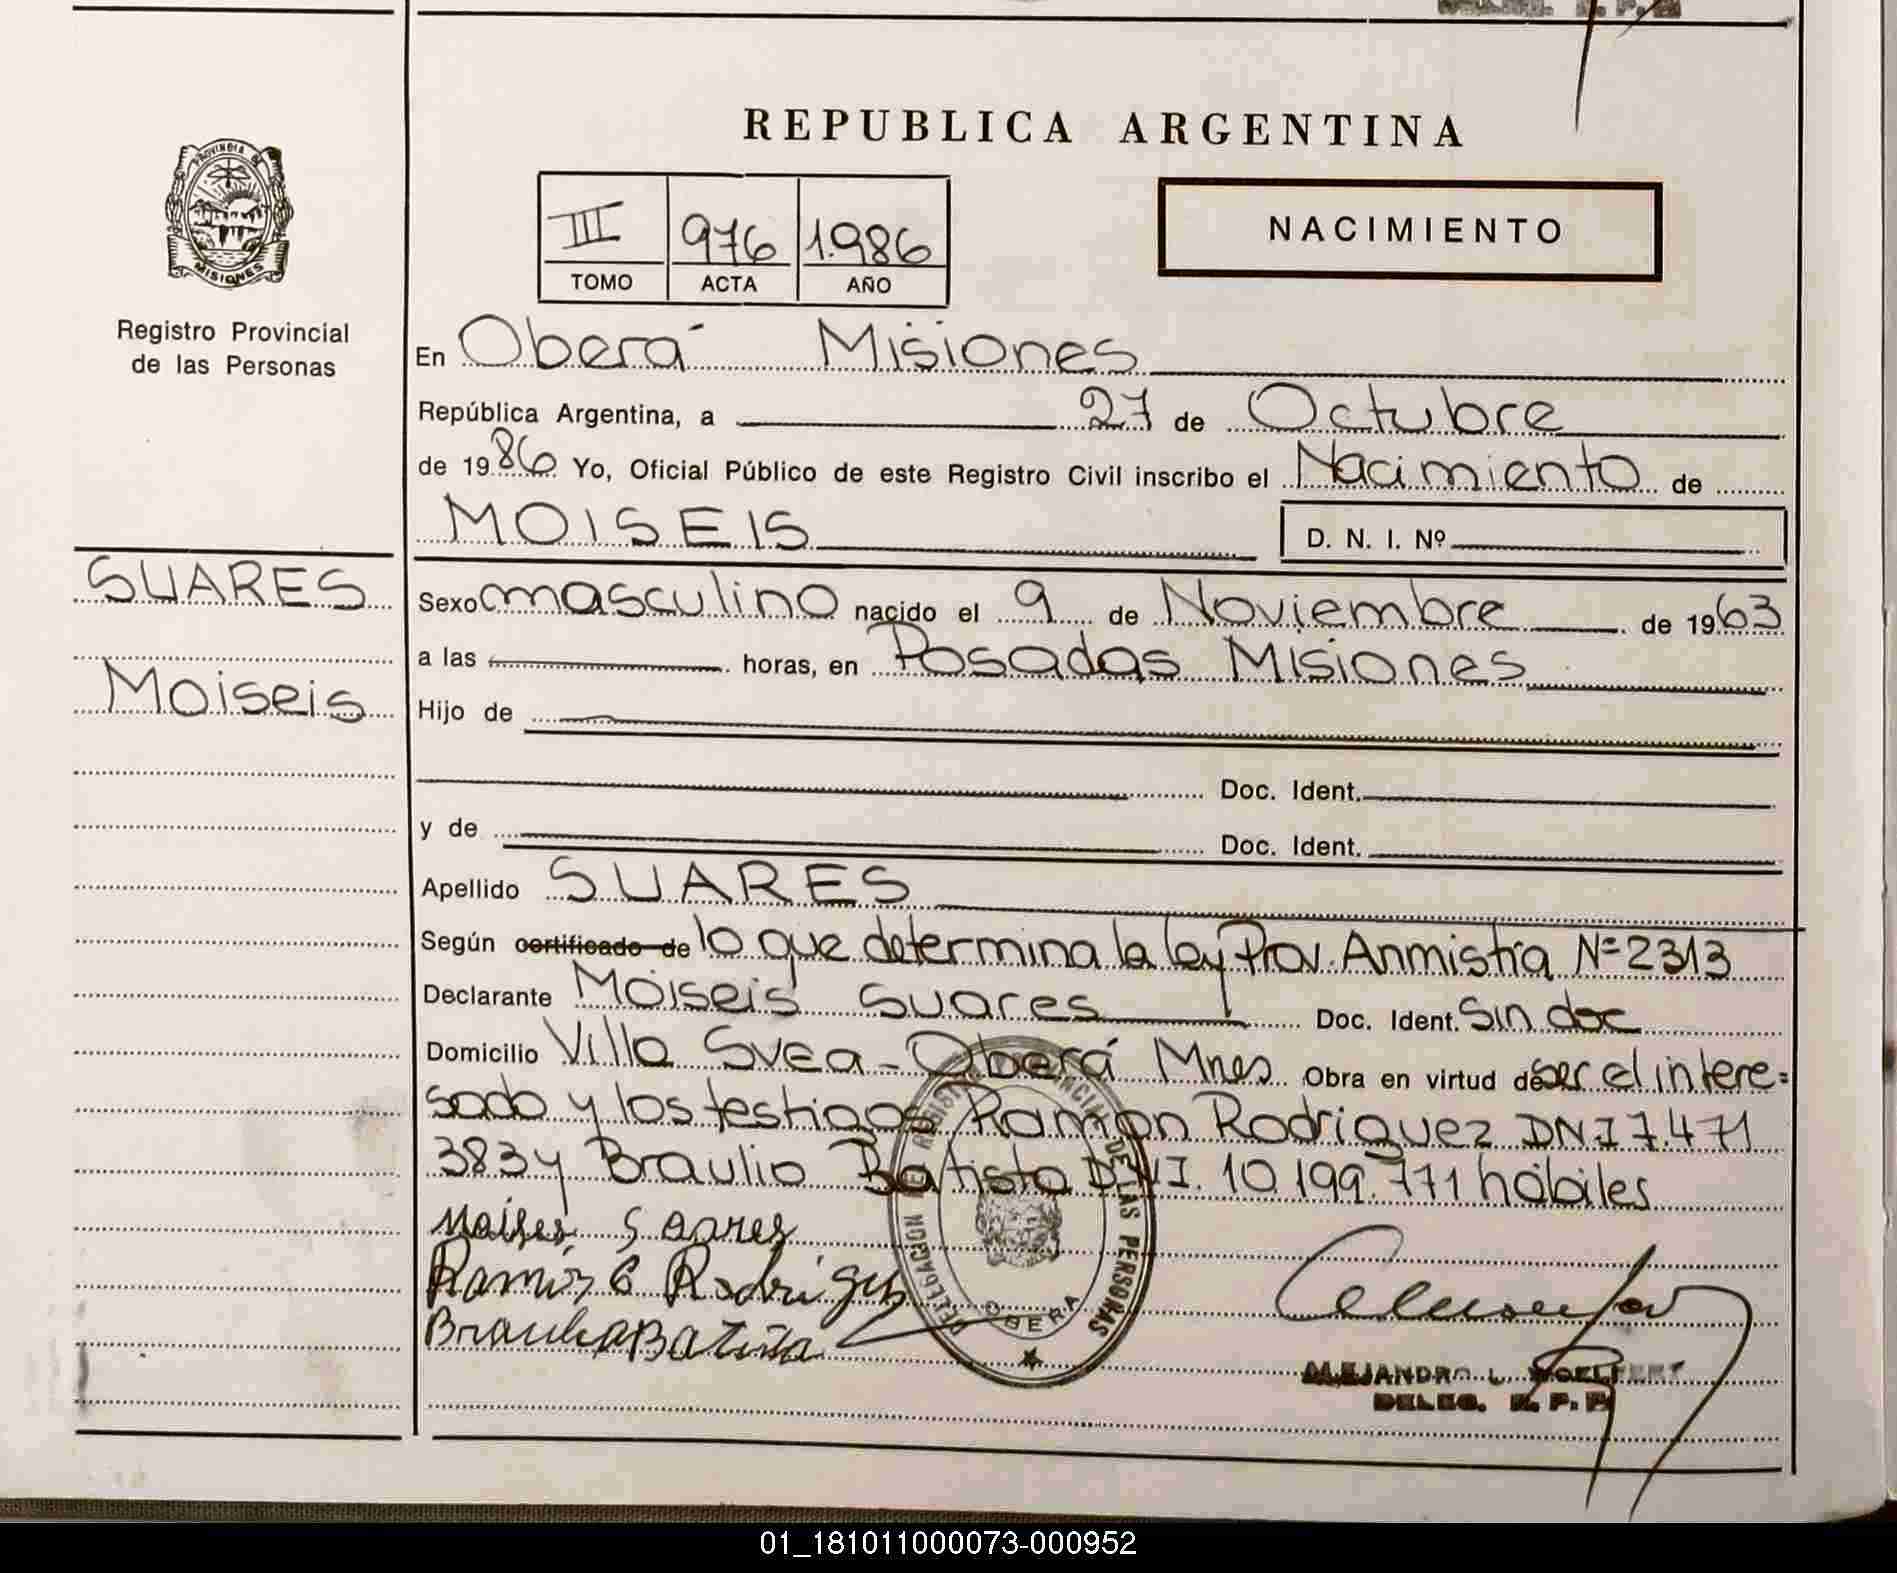 REPUBLICA ARGENTINA
PROVINCIA DE
MISIONES
Registro Provincial
de las Personas
III 976 1.986
TOMO ACTA AÑO
NACIMIENTO
En Oberá Misiones
República Argentina, a 27 de Octubre
de 1986 Yo, Oficial Público de este Registro Civil inscribo el Nacimiento de
MOISEIS D. N. I. Nº
SUARES
Moiseis
Sexo masculino nacido el 9 de Noviembre de 1963
a las horas, en Posadas Misiones
Hijo de
Doc. Ident.
y de Doc. Ident.
Apellido SUARES
Según certificado de lo que determina la ley Prov. Anmistía Nº 2313
Declarante Moiseis Suares Doc. Ident. Sin doc
Domicilio Villa Svea - Oberá Mnes Obra en virtud de ser el intere=
sado y los testigos Ramon Rodriguez DNI 7.471
383 y Braulio Batista D.N.I. 10 199.771 hábiles
Moises Soares
Ramón C Rodrigues
Braulio Batista
DELEGACION DEL REGISTRO PROVINCIAL DE LAS PERSONAS
OBERA
ALEJANDRO L. WOELFERT
DELEG. R. P. P.
01_181011000073-000952